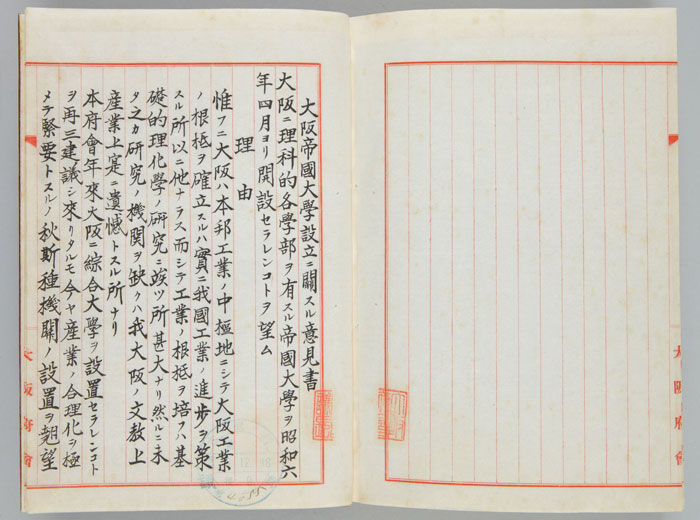 大阪帝國大學設立ニ關スル意見書
大阪ニ理科的各學部ヲ有スル帝國大學ヲ昭和六
年四月ヨリ開設セラレンコトヲ望ム
理由
惟フニ大阪ハ本邦工業ノ中樞地ニシテ大阪工業
ノ根柢ヲ確立スルハ實ニ我國工業ノ進歩ヲ策
スル所以ニ他ナラス而シテ工業ノ根柢ヲ培フハ基
礎的理化學ノ研究ニ竢ツ所甚大ナリ然ルニ未
タ之カ研究ノ機関ヲ缺クハ我大阪ノ文教上
産業上寔ニ遺憾トスル所ナリ
本府會年來大阪ニ綜合大學ヲ設置セラレンコト
ヲ再三建議シ來リタルモ今ヤ産業ノ合理化ヲ極
メテ緊要トスルノ秋斯種機關ノ設置ヲ翹望
大阪府會
大阪府會